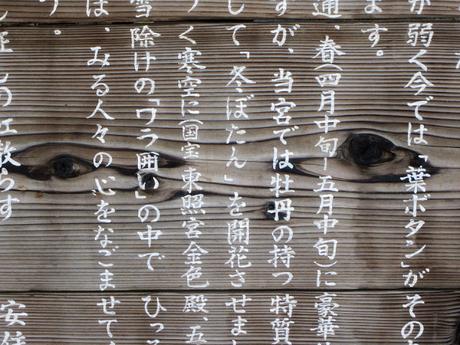 が弱く今では「葉ボタン」がその
ます。
通、春四月中旬ー五月中旬)に豪華
すが、当宮では牡丹の持つ特質
して「冬ぼたん」を開花させまし
く寒空に(国宝 東照宮金色殿、五
雪除けの「ワラ囲い」の中でひっ
は、みる人々の心をなごませて
う。
散らす